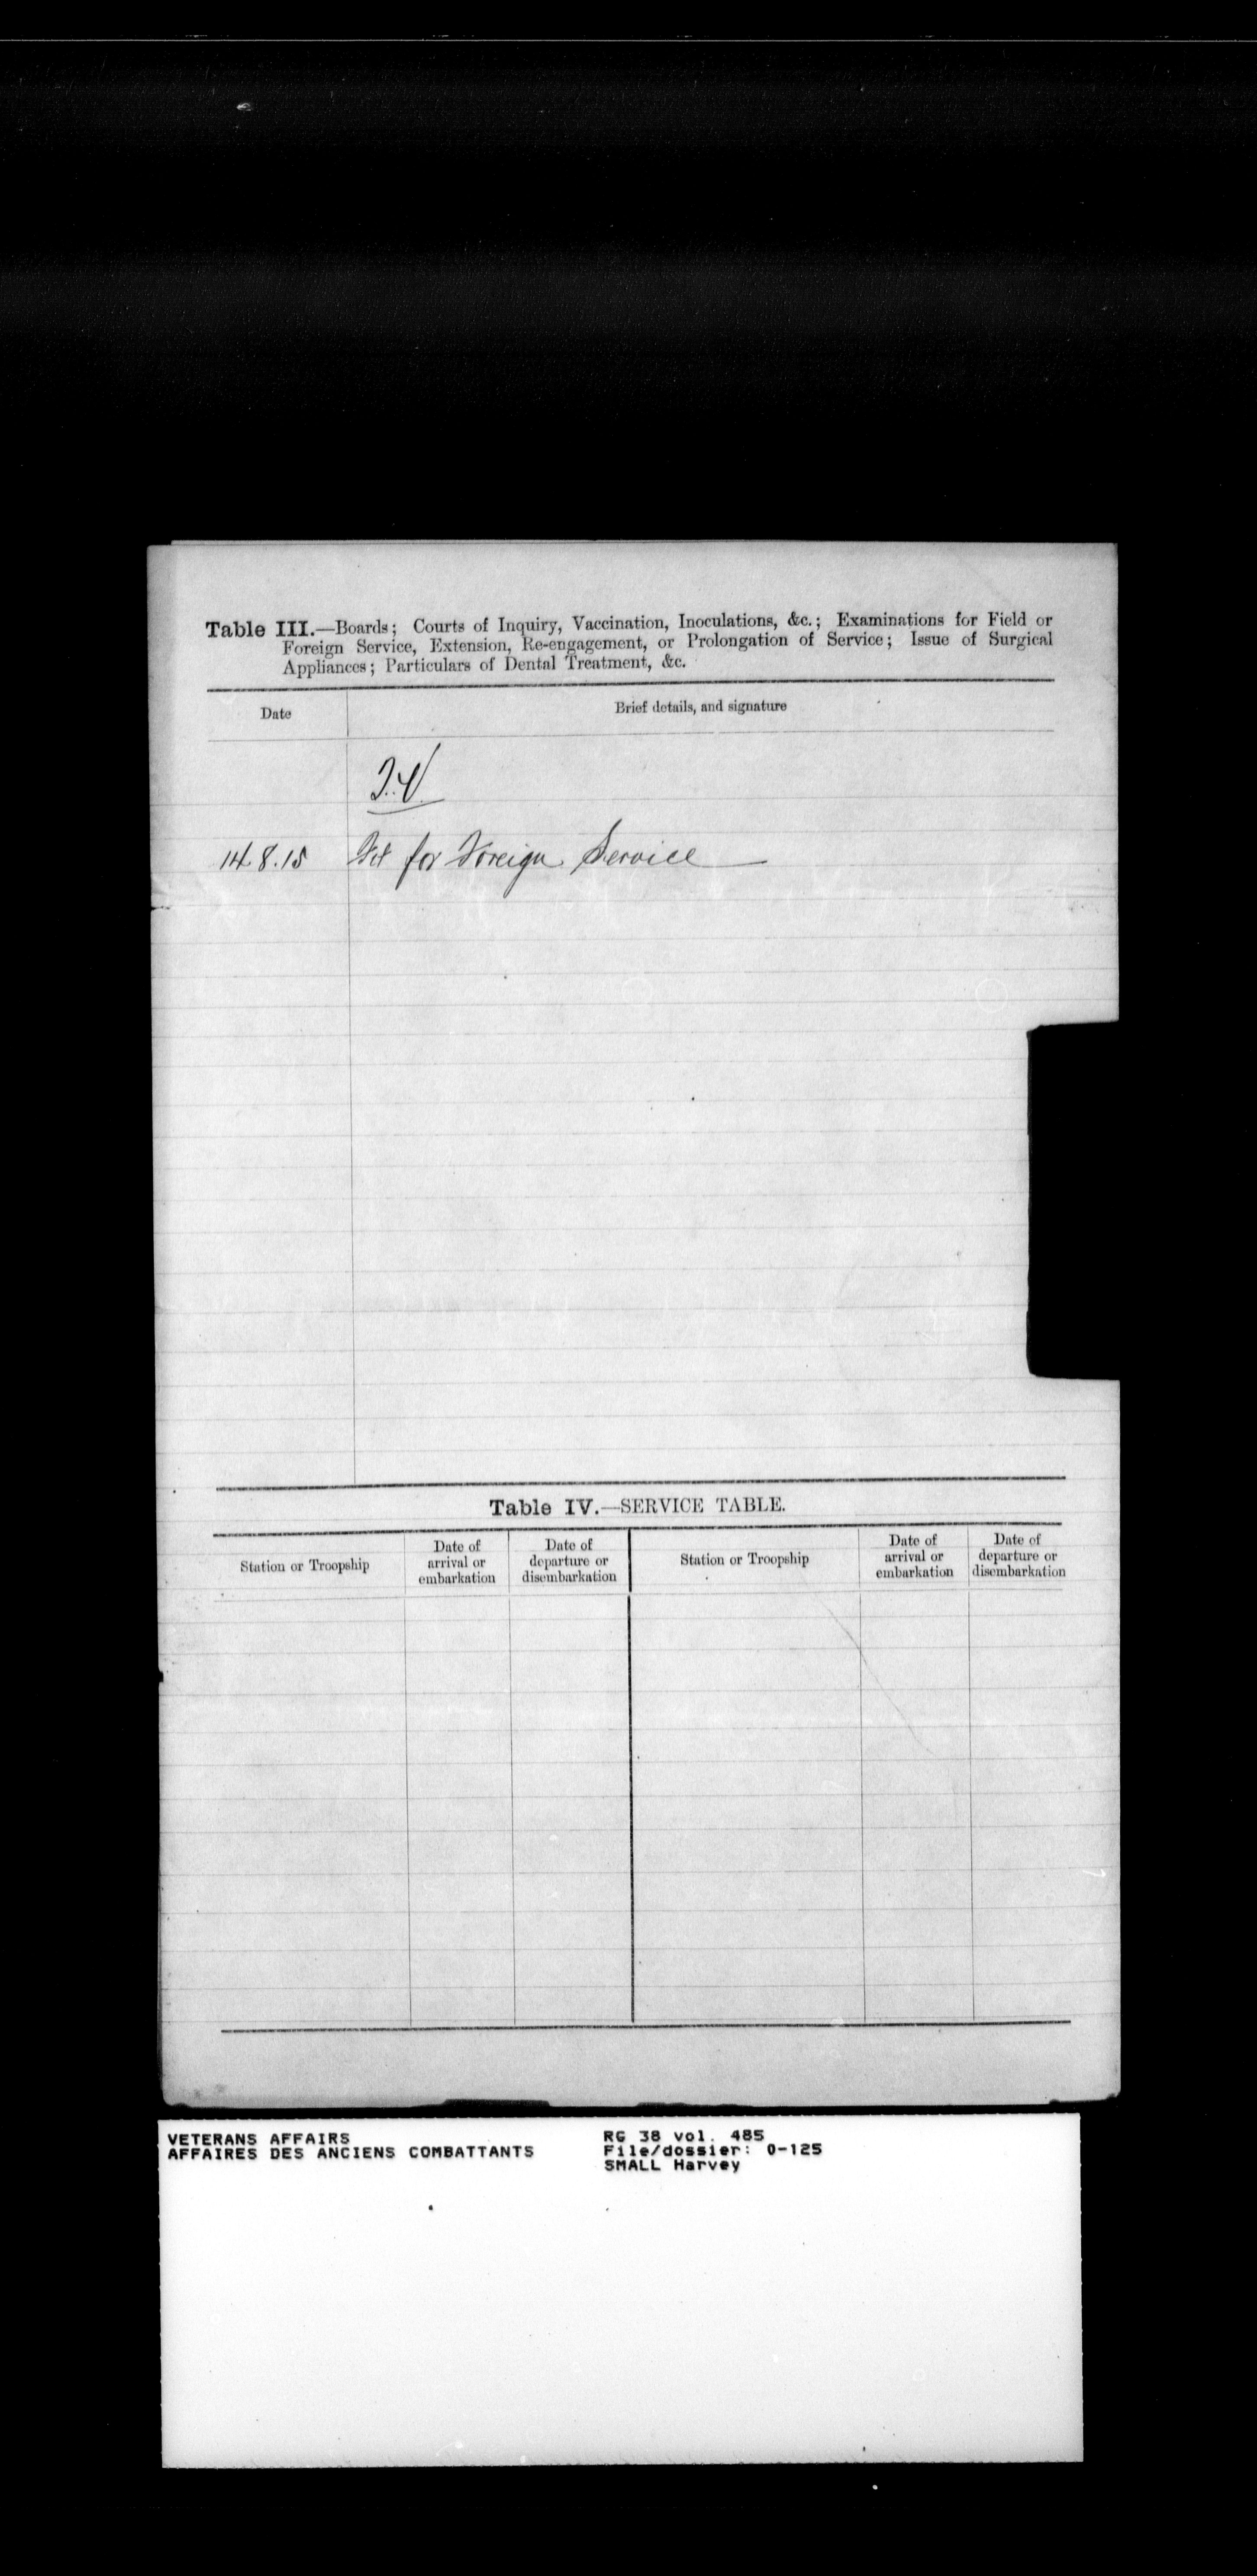 Table III.—Boards; Courts of Inquiry, Vaccination, Inoculations, &c.; Examinations for Field or
Foreign Service, Extension, Re-engagement, or Prolongation of Service; Issue of Surgical
Appliances; Particulars of Dental Treatment, &c.
Date Brief details, and signature
14.8.15 Fit for Foreign Service
Table IV.—SERVICE TABLE.
Station or Troopship
Date of
arrival or
embarkation
Date of
departure or
disembarkation
Station or Troopship
Date of
arrival or
embarkation
Date of
departure or
disembarkation
VETERANS AFFAIRS
AFFAIRES DES ANCIENS COMBATTANTS
RG 38 vol. 485
File/dossier: 0-125
SMALL Harvey